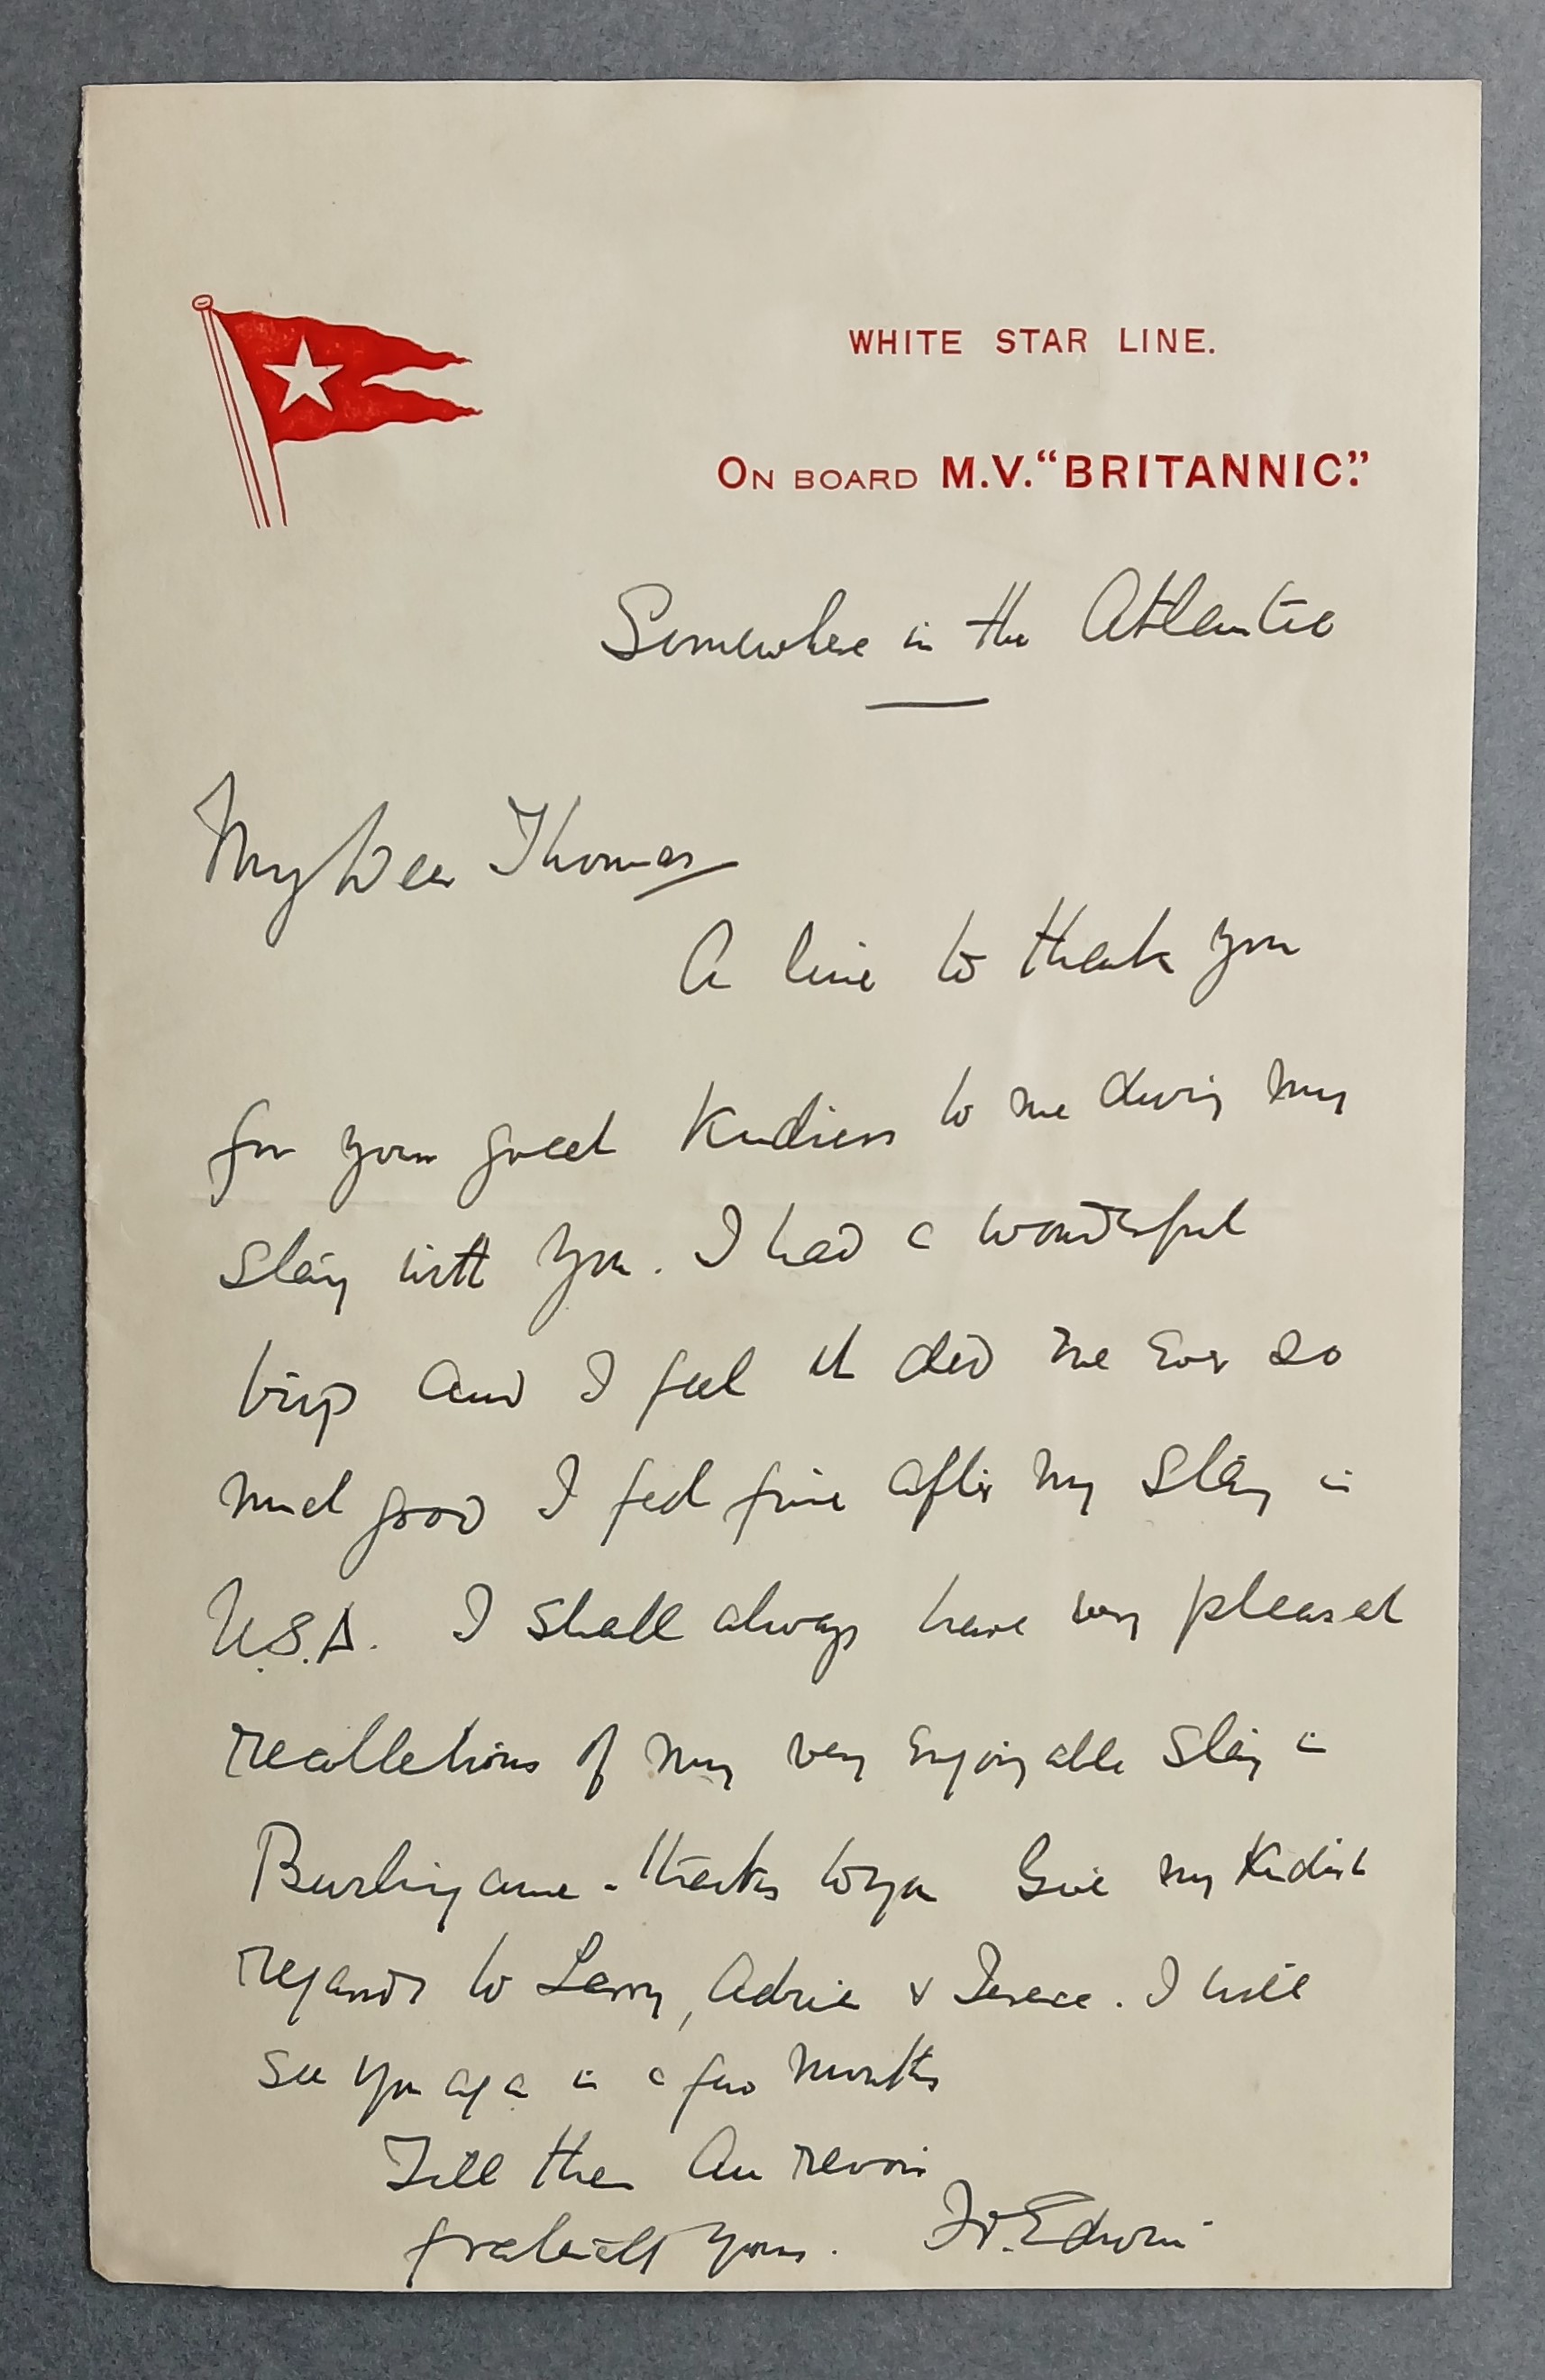 WHITE STAR LINE.
ON BOARD M.V. "BRITANNIC."
Somewhere in the Atlantic
My Dear Thomas
A line to thank you
for your great kindness to me during my
stay with you. I had a wonderful
trip and I feel it did me ever so
much good I feel fine after my stay in
U.S.A. I shall always have very pleasant
recollections of my very enjoyable stay in
Burlingame - thanks to you Give my kindest
regards to Larry, & I will
see you again in a few months
Till then Au revoir
yours. Fr. Edwin